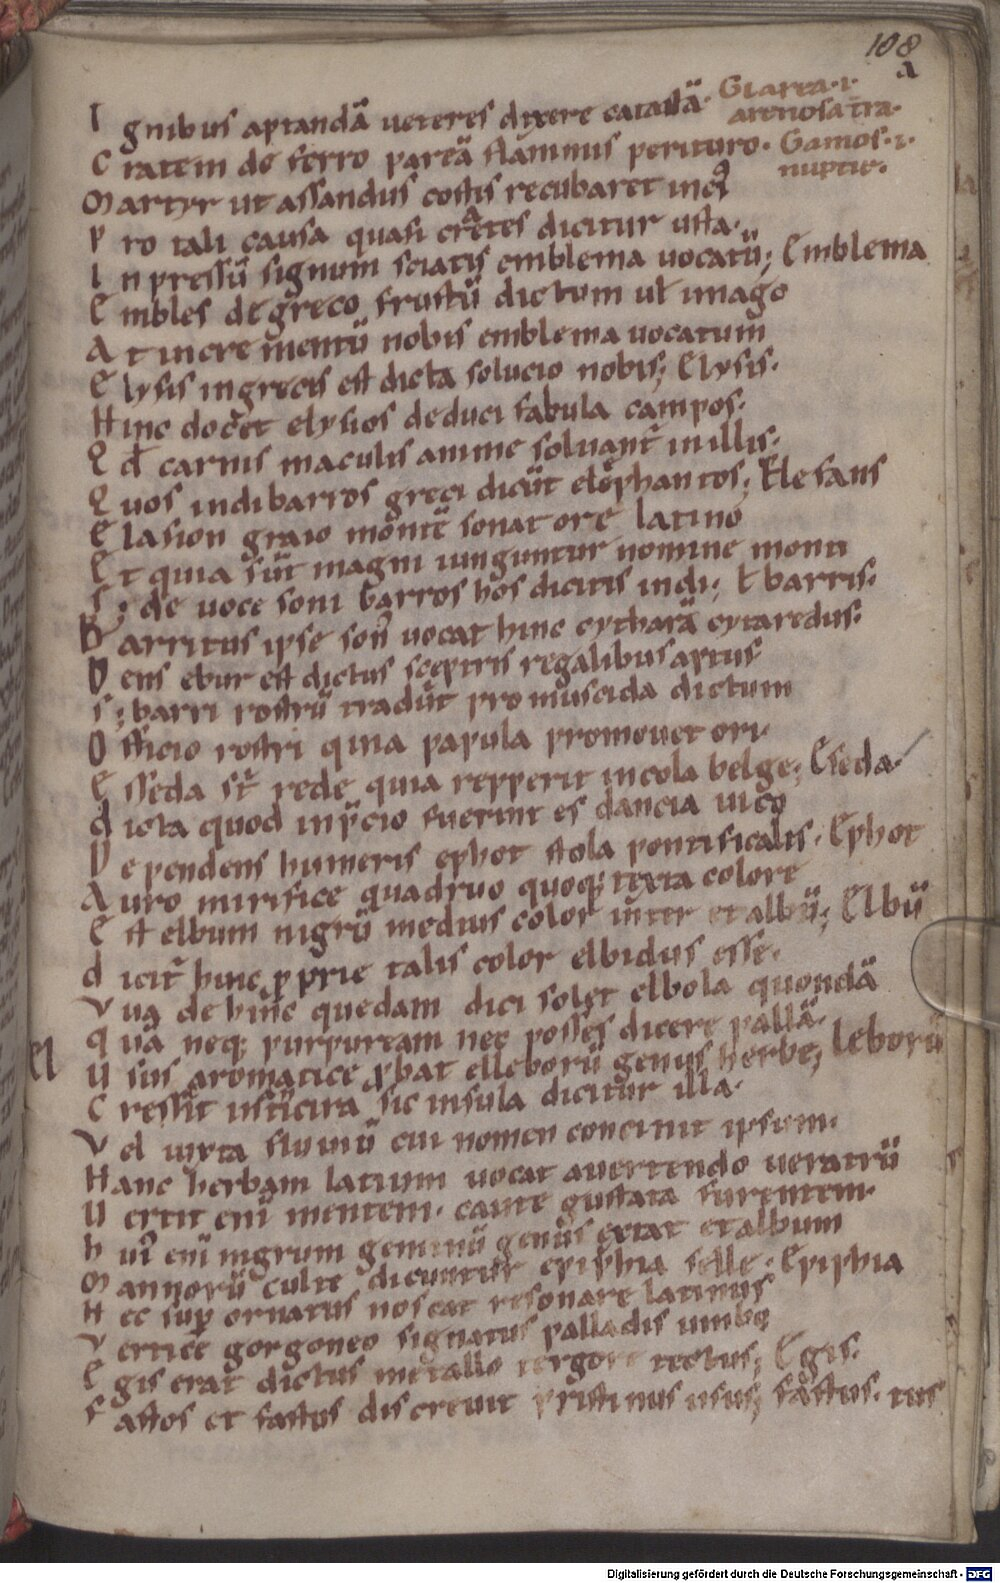 108
a
Giarra .i.
arenosa tra.
Gamos .i.
nuptie.
I gnibus aptandā ueteres dixere catastā
C ratem de ferro pareā flāminis perituro.
M artyr ut assandus costis recubaret in ei᷒
P ro tali causa quasi cratetes dicitur usta.
I n pressū signum sciatis emblema uocatū; Emblema
E mbles de greco frustū dictum ul imago
A t incre mentū nobis emblema uocatum
E lysis in grecis est dicta solucio nobis; Elysis.
H inc docet elysios deduci fabula campos.
Q d carnis maculis anime soluant in illis.
Q uos indi barros greci dicūt elephantos; Elefans
E lasion graio montē sonat ore latino
E t quia sūt magni iunguntur nomine monti
S ; de uoce soni barros hos dicitis indi; ł barris.
B arritus ipse son uocat hinc cytharā cytaredus.
D ens ebur est dictus sceptris regalibus aptus
S ; barri rostrū tradūt pro muscida dictum
O fficio rostri quia papula promouet ori.
E sseda st rede quia repperit incola belge; Eseda.
d icta quod in pcio fuerint es dancia uico
D e pendens humeris ephot stola pontificalis. Ephot
A uro mirifice quadruo quoq; texta colore
E st elbum nigrū medius color inter et albū; Elbū
d icit hinc p prie talis color elbidus esse.
V ua de hinc quedam dici solet elbola quondā
q uā neq; purpuream nec posses dicere pallā.
el
U sus aromatice pbat elleborū genus herbe; leborū
C ressit in sticira sic insula dicitur illa.
V el iuxta fluuiū cui nomen concinit ipsum.
H anc herbam latium uocat auertendo ueratrū
U ertit eni mentem. caute gustata furentem.
h ui eni nigrum geminū genus extat et album
M annorū culte dicuntur epiphia selle. Epiphia
H ec sup ornatus noscat resonare latinus
V ertice gorgoneo signatus palladis umbo
E gis erat dictus metallo tergore tectus; Egis.
F astos et fastus discreuit pristinus usus; fastus. tus
Digitalisierung gefördert durch die Deutsche Forschungsgemeinschaft - DFG